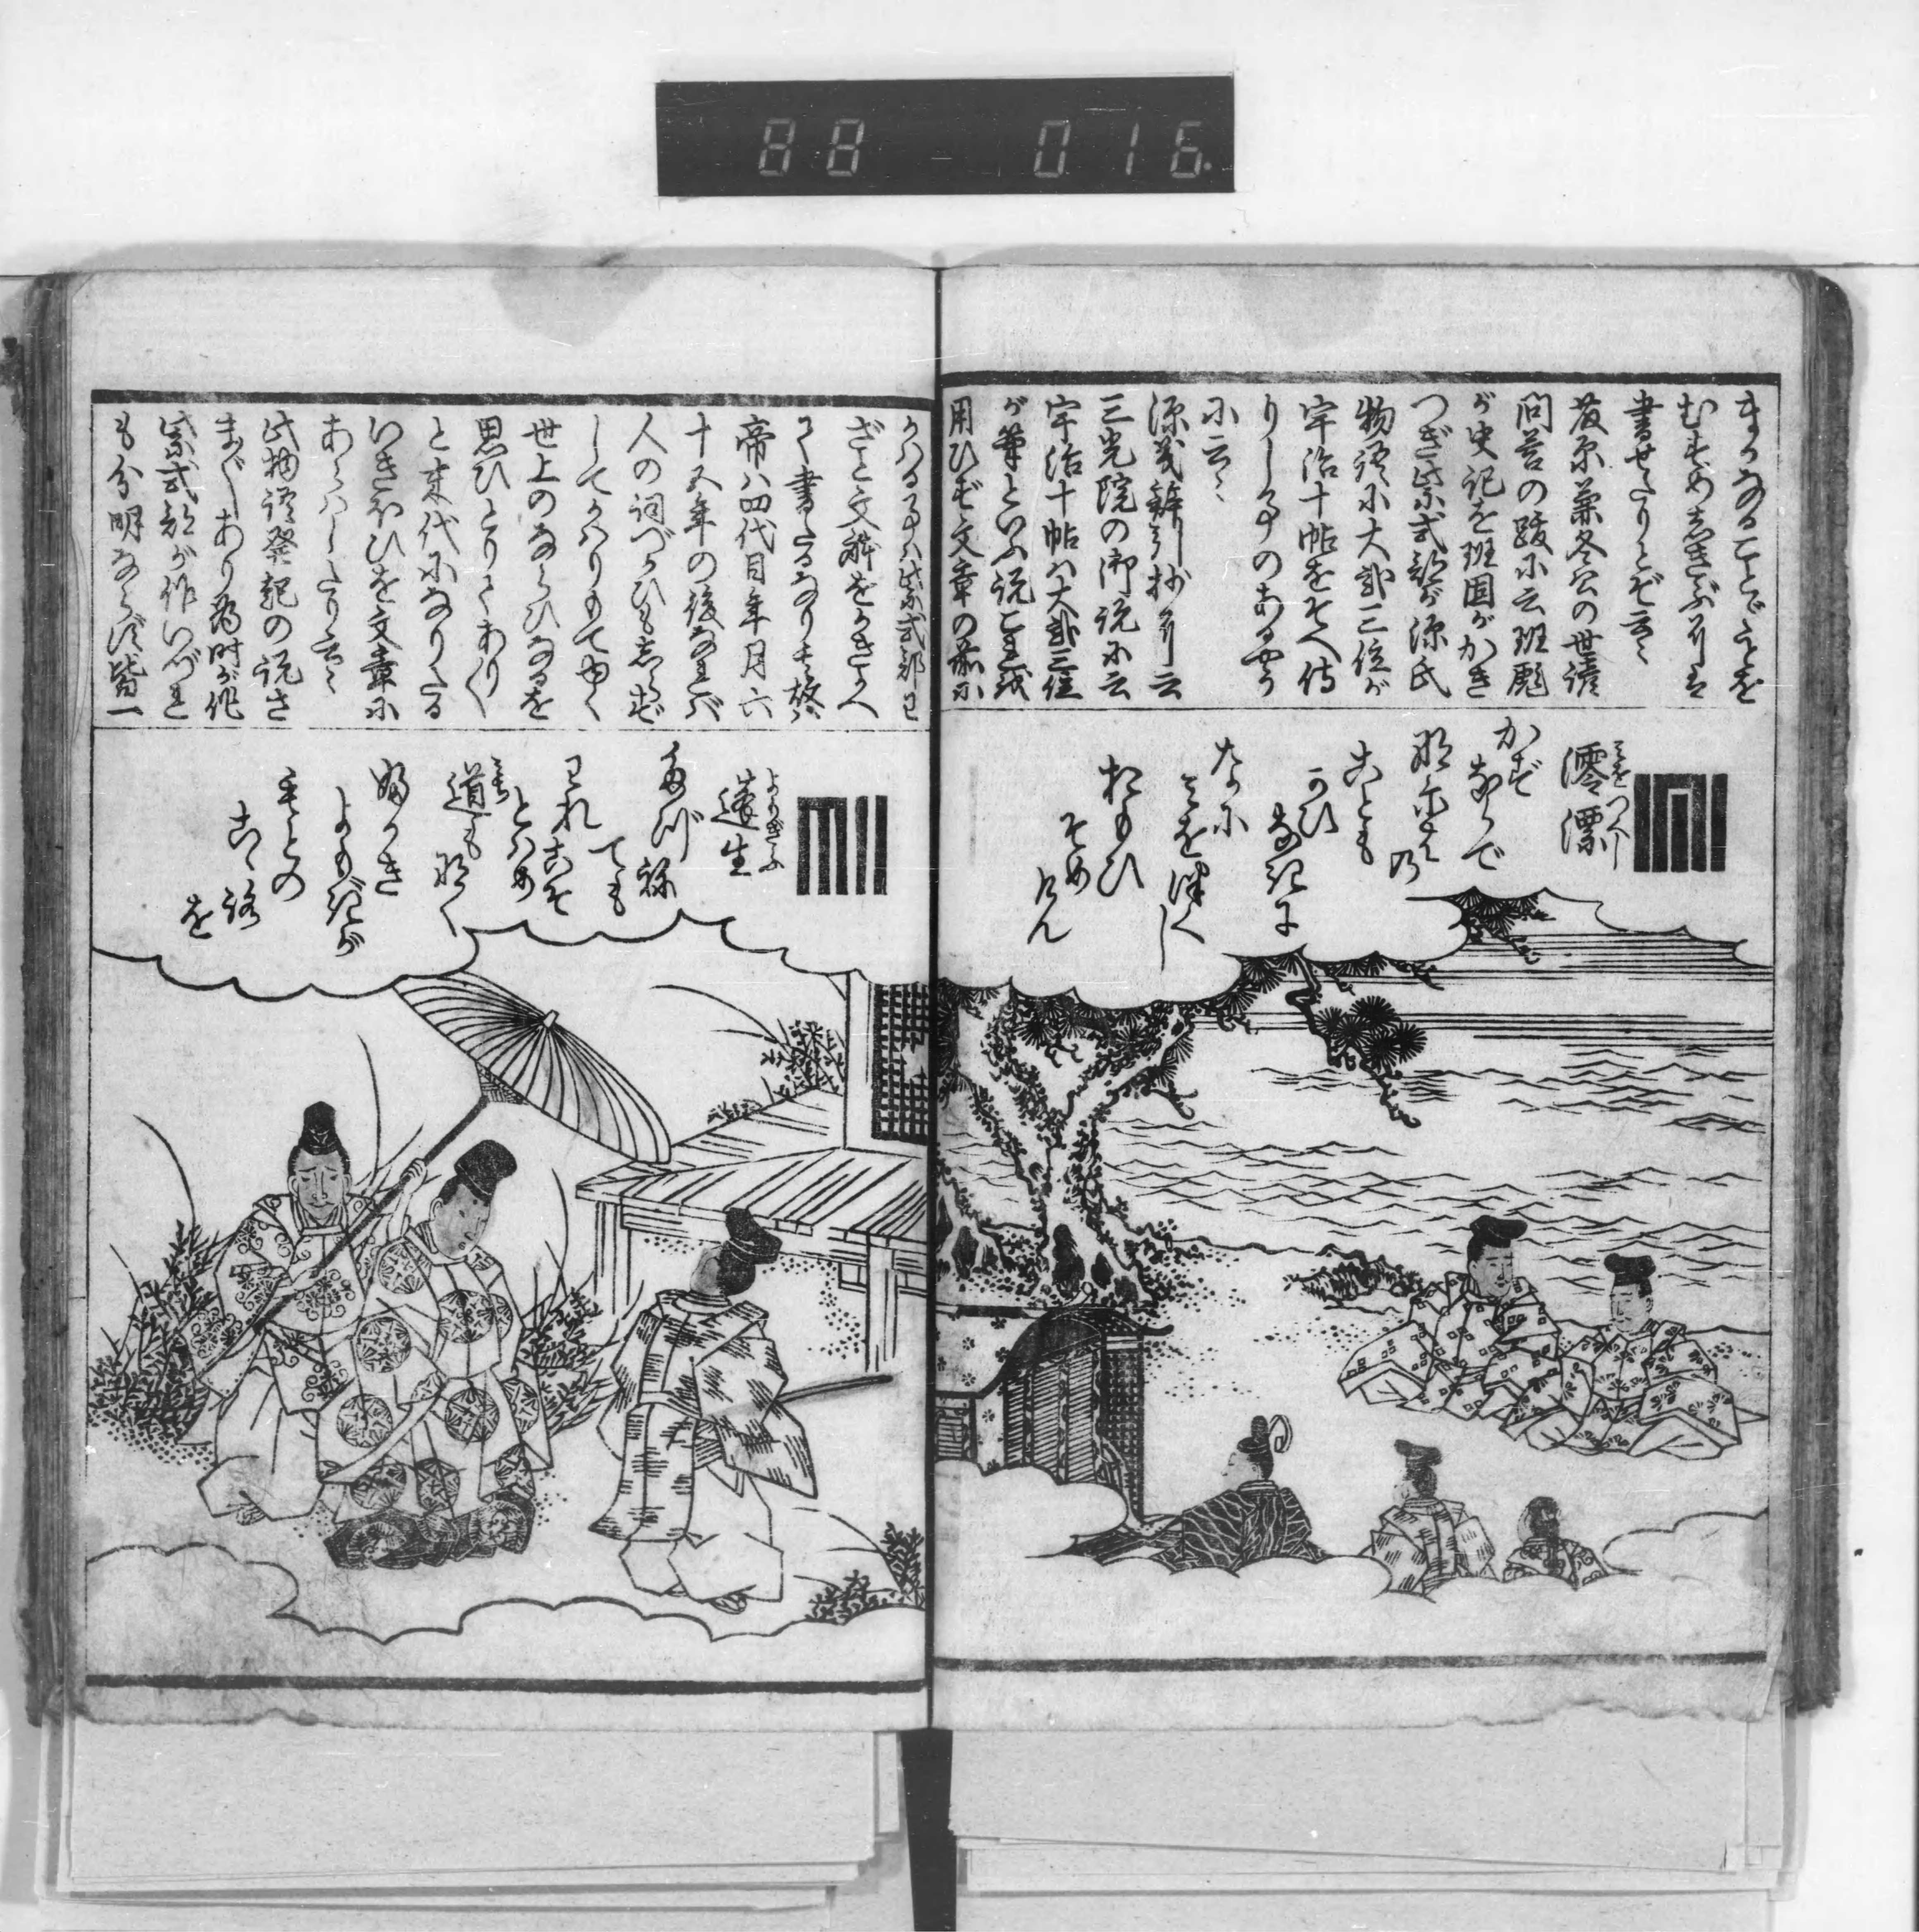 88 - 016.
まかなることどもを
むすめしきぶに
書せたりとぞ云々
藤原兼冬公の世諺
問答の跋に云班彪
が史記を班固がかき
つぎ紫式部が源氏
物語に大弐三位が
宇治十帖をそへ侍
りし事のあるやう
に云々
源義弁引抄に云
三光院の御説に云
宇治十帖は大弐三位
が筆といふ説これを
用ひず文章の
かはる事は紫式部わ
ざと文躰をかきかへ
て書たるなり其故は
帝は四代目年月六
十五年の後なれば
人の詞づかひもしらず
してかはりもてゆく
世上のならひなるを
思ひとりてありく
と末代になりたる
いきほひを文章に
あらはしたり云々
此物語発起の説さ
まざまあり為時が作
紫式部が作いづれ
も分明ならず皆一
澪漂
みをつくし
かず
ならで
なにはの
ことも
かひ
なきに
などみをつくし
おもひ
そめ
けん
蓬生
よもぎふ
たづね
ても
われこそ
とはめ
道も
なく
ふかき
よもぎが
もとの
こゝろ
を